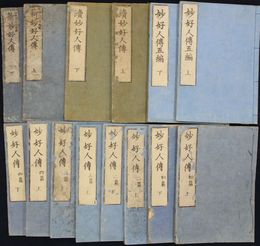 妙好人傳五編 上
妙好人傳五編 下
續妙好人傳 上
續妙好人傳 下
新妙好人傳 上
新妙好人傳 下
妙好人傳 初篇 上
妙好人傳 初篇 下
妙好人傳 上
妙好人傳 下
妙好人傳 三篇 上
妙好人傳 四篇 上
妙好人傳 四篇 下